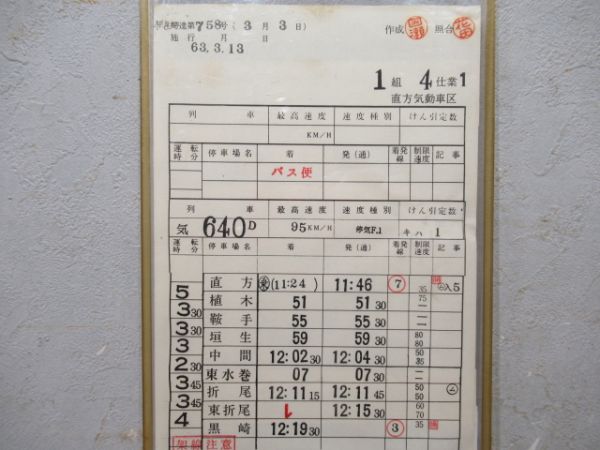 達第758号(3月3日)
施行 月 日
63.3.13
作成 照合
1組 4仕業1
直方気動車区
列 車 最高速度 速度種別 けん引定数
KM/H
運転時分 停車場名 着 発(通) 着発線 制限速度 記事
バス便
列 車 最高速度 速度種別 けん引定数
気 640D 95KM/H 停気F.1 キハ 1
運転時分 停車場名 着 発(通) 着発線 制限速度 記事
直方 (11:24 ) 11:46 7 35 入5
5 植木 51 51 30 75
3 30 鞍手 55 55 30
3 30 垣生 59 59 30 80
3 中間 12:02 30 12:04 30 50 35
2 30 東水巻 07 07 30
3 45 折尾 12:11 15 12:11 45 50 50
3 45 東折尾 12:15 30 60 70
4 黒崎 12:19 30 3 35
架線注意